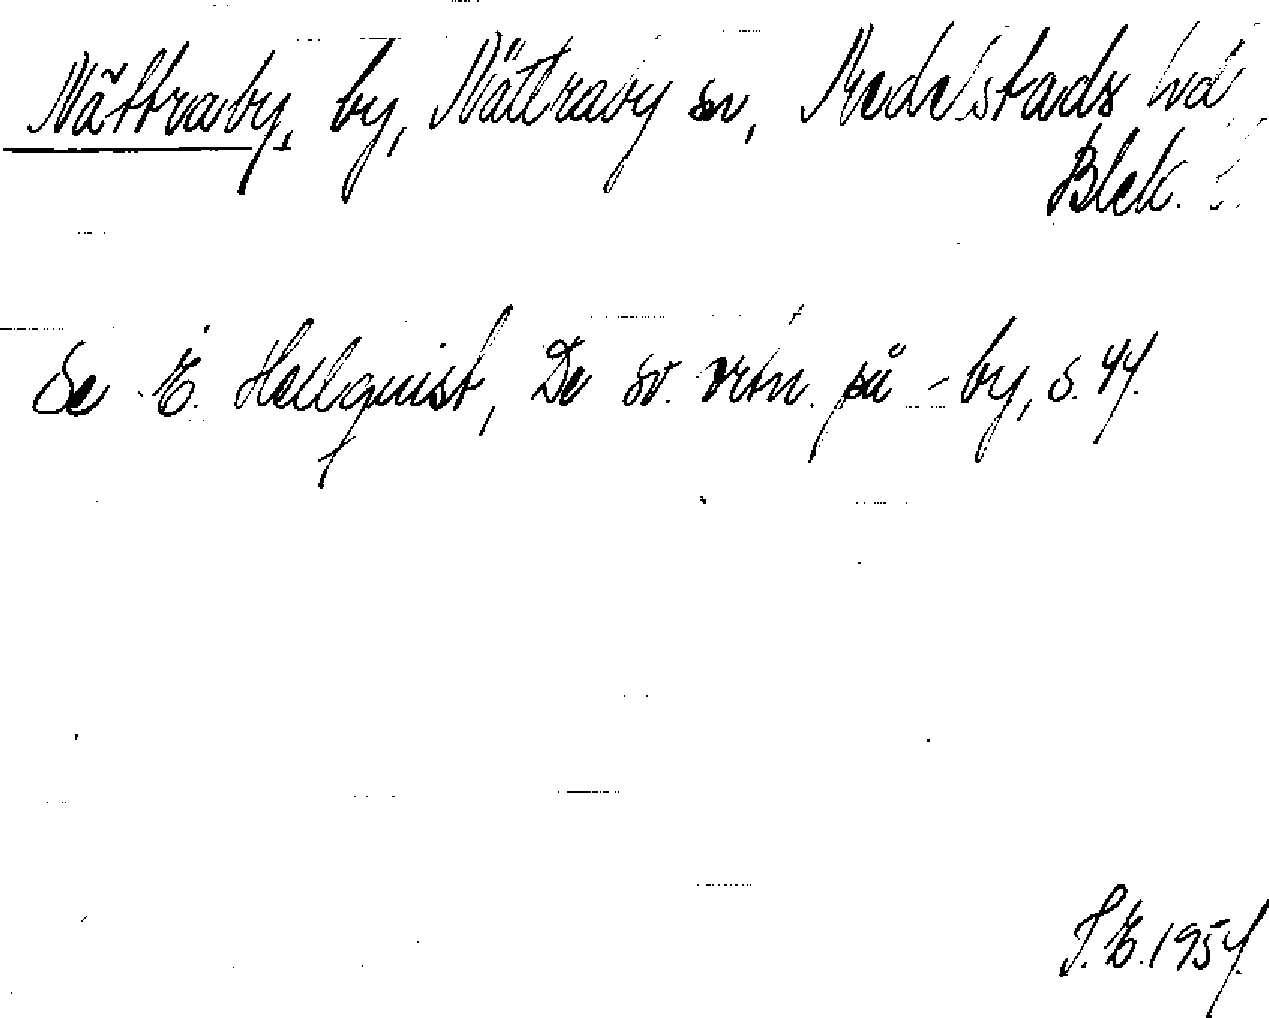 Nättraby, by, Nättraby sn, Medelstads hd,
Blek.
Se E. Hellquist, De sv. ortn. på -by, s. 44.
S.E. 1954.